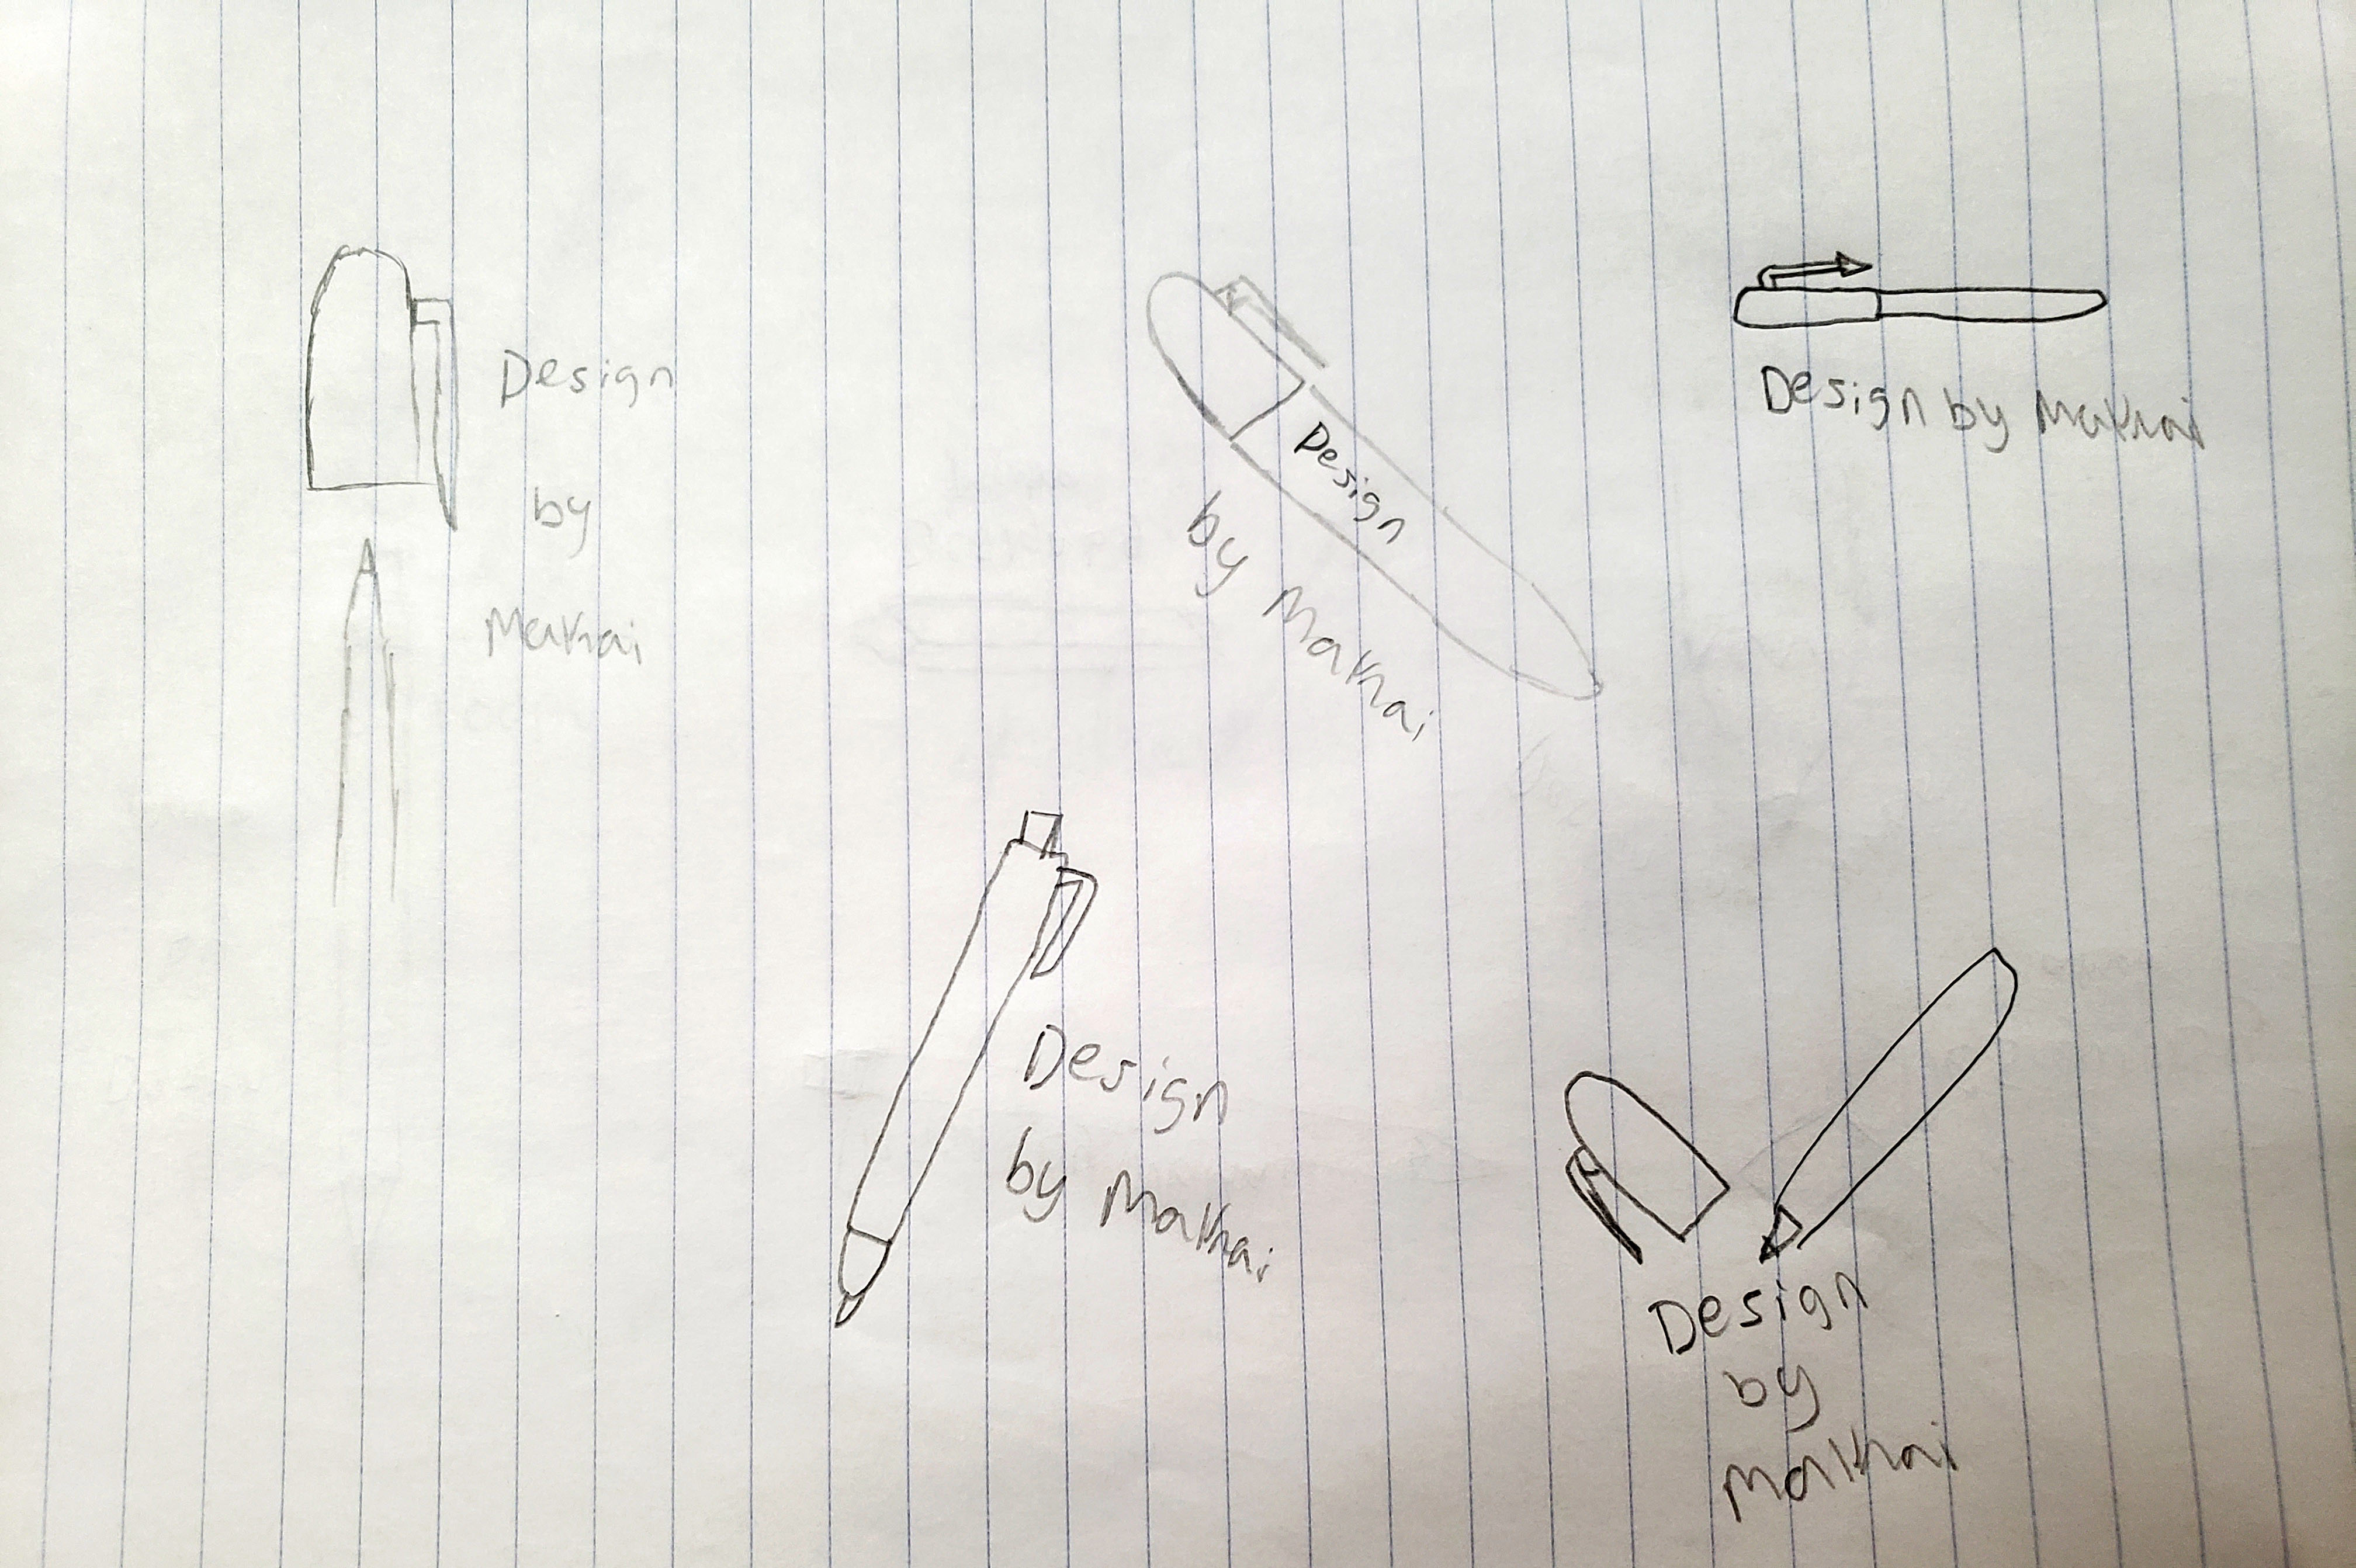 Design
by
Makhai
Design
by Makhai
Design by Makhai
Design
by Makhai
Design
by
Makhai